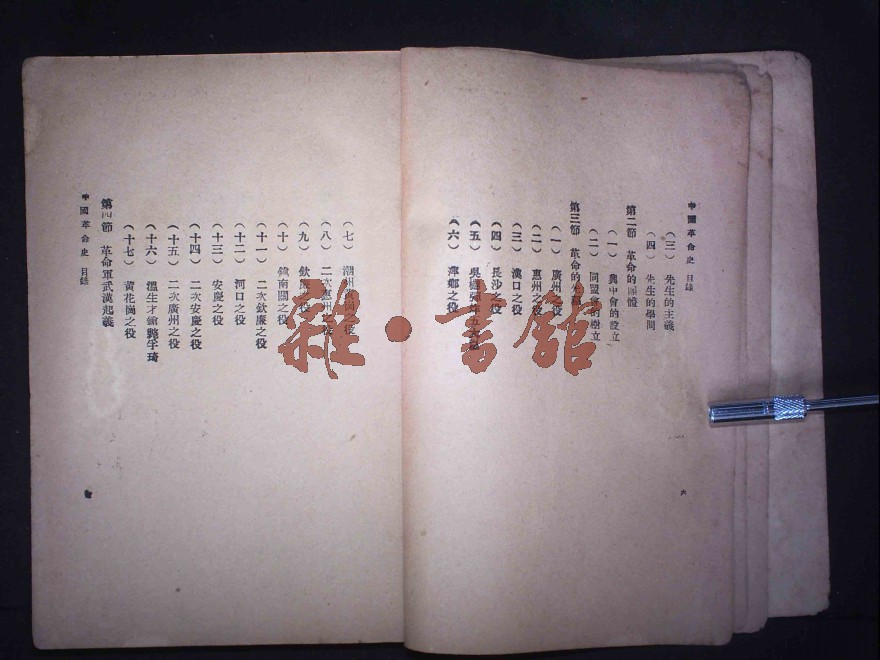 中國革命史 目錄
(三) 先生的主義
(四) 先生的學問
第二節 革命的團體
(一) 興中會的設立
(二) 同盟會的樹立
第三節 革命的
(一) 廣州之役
(二) 惠州之役
(三) 漢口之役
(四) 長沙之役
(五) 吳樾彈炸五大臣
(六) 萍鄉之役
六
(七) 潮州黃岡之役
(八) 二次惠州之役
(九) 欽廉之役
(十) 鎮南關之役
(十一) 二次欽廉之役
(十二) 河口之役
(十三) 安慶之役
(十四) 二次安慶之役
(十五) 二次廣州之役
(十六) 溫生才鎗斃孚琦
(十七) 黃花崗之役
第四節 革命軍武漢起義
中國革命史 目錄
雜·書館